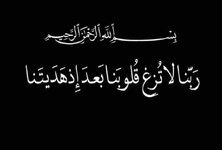 بسم الله الرحمن الرحيم
ربنا لا تزغ قلوبنا بعد إذ هديتنا